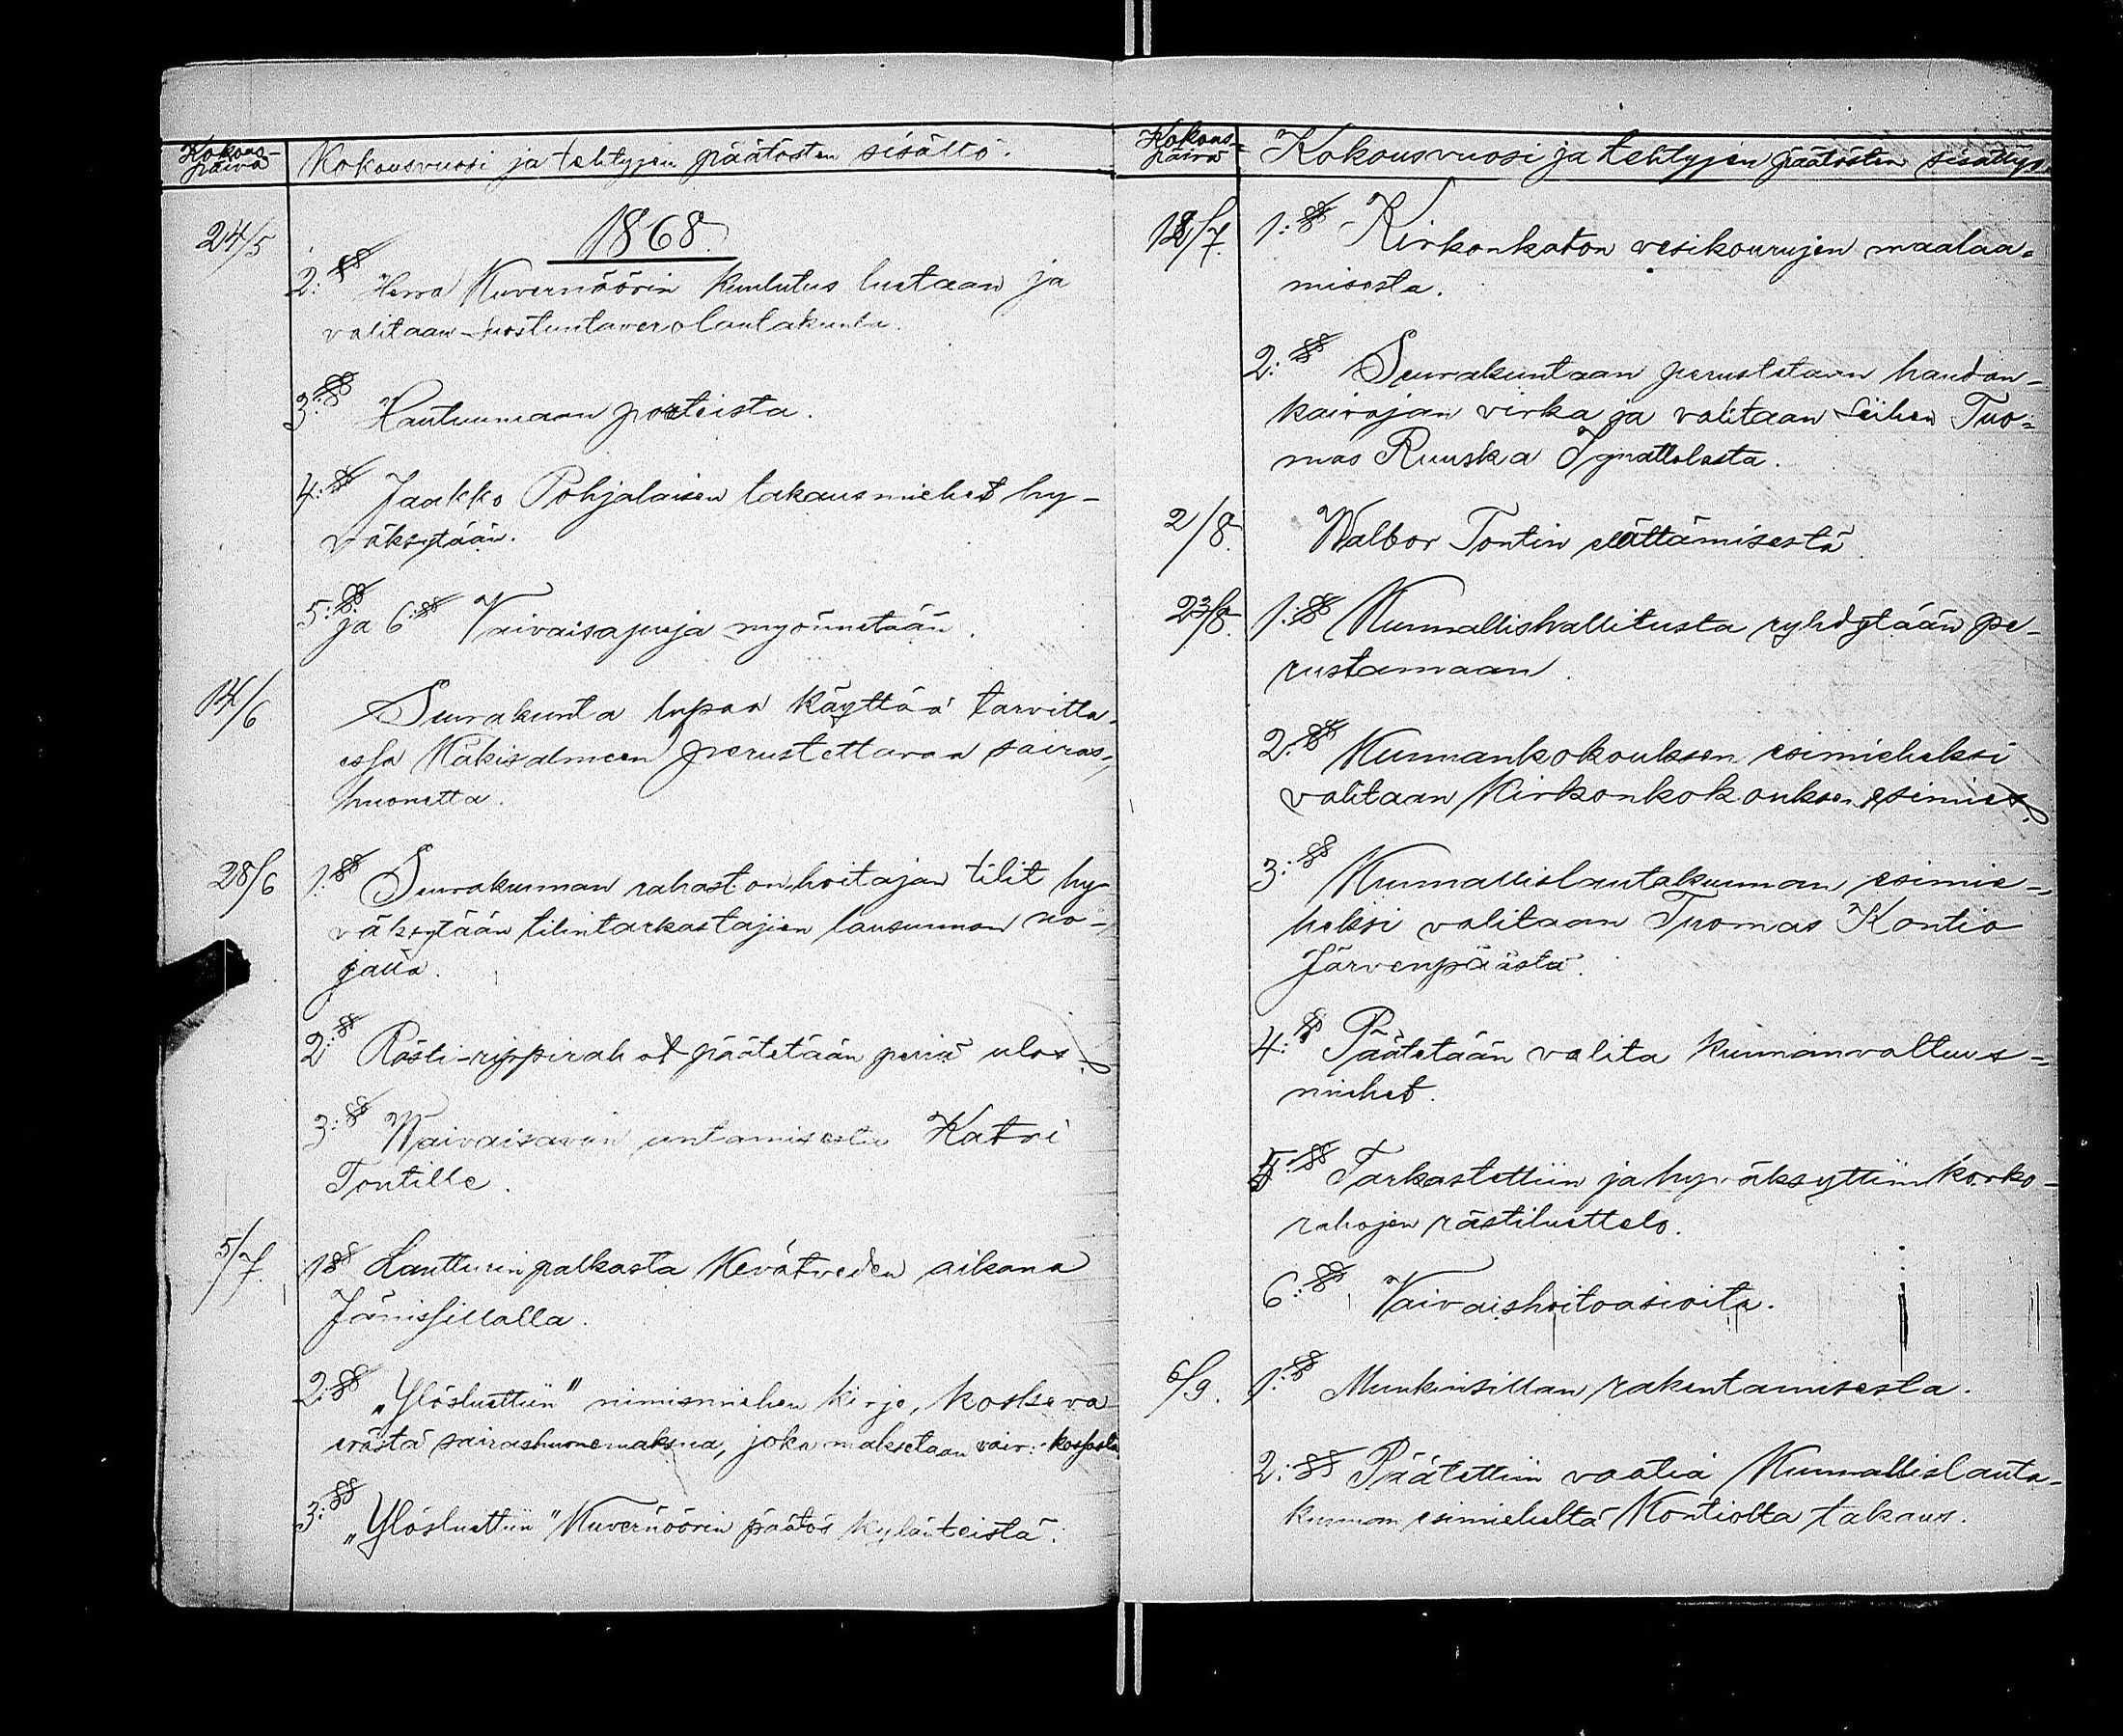 Kokous-
päivä
Kokousvuosi ja tehtyjen päätösten sisältö.
1868.
24/5
2:§§ Herra Kuvernöörin kuulutus luetaan ja
valitaan suostuntaverolautakunta.
3:§§ Hautuumaan porteista.
4:§§ Jaakko Pohjalaisen takausmiehet hy-
väksytään.
5:§§
ja 6:§§ Vaivaisapuja myönnetään.
14/6
Seurakunta lupaa käyttää tarvitta-
essa Käkisalmeen perustettavaa sairas-
huonetta.
28/6 1:§§ Seurakunnan rahastonhoitajan tilit hy-
väksytään tilintarkastajien lausunnon no-
jalla.
2:§§ Rästi-rippirahat päätetään periä ulos.
3:§§ Waivaisavun antamisesta Katri
Tontille.
5/7. 1§§ Lautturin palkasta Kevätveden aikana
Jänissillalla.
2:§§ „Ylösluettiin" nimismiehen kirje, koskeva
erästä sairashuonemaksua, joka maksetaan vaiv:kassasta
3:§§ „Ylösluettiin" Kuvernöörin päätös kyläteistä.
Kokous-
päivä
Kokousvuosi ja tehtyjen päätösten sisällys.
12/7. 1:§ Kirkonkaton vesikourujen maalaa-
misesta.
2:§§ Seurakuntaan perustetaan haudan-
kaivajan virka ja valitaan siihen Tuo-
mas Ruuska Ignattalasta.
2/8. Walbor Tontin elättämisestä
23/8. 1:§§ Kunnallishallitusta ryhdytään pe-
rustamaan.
2:§§ Kunnankokouksen esimieheksi
valitaan Kirkonkokouksen esimies.
3:§§ Kunnallislautakunnan esimie-
heksi valitaan Tuomas Kontio
Järvenpäästä.
4:§ Päätetään valita kunnanvaltuus-
miehet.
5:§§ Tarkastettiin ja hyväksyttiin korko-
rahojen rästiluettelo.
6:§§ Vaivaishoitoasioita.
6/9. 1:§§ Munkinsillan rakentamisesta.
2:§§ Päätettiin vaatia Kunnallislauta-
kunnan esimieheltä Kontiolta takaus.